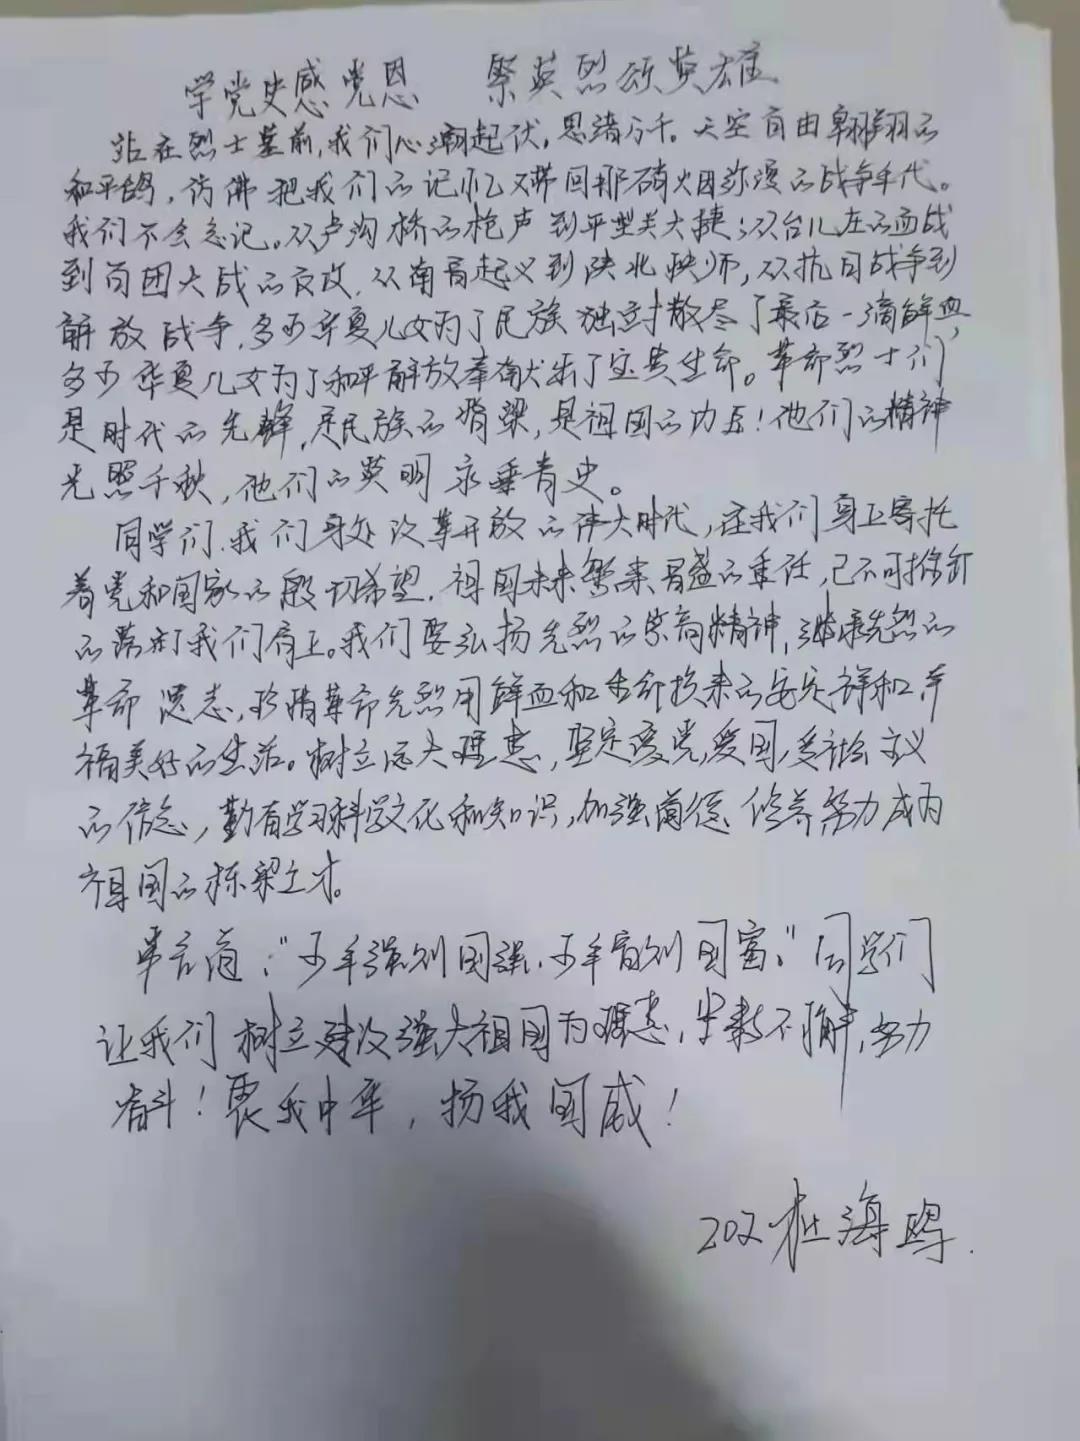 学党史感党恩　祭英烈颂英雄
站在烈士墓前,我们心潮起伏,思绪万千。天空自由翱翔的
和平鸽,仿佛把我们的记忆又带回那硝烟弥漫的战争年代。
我们不会忘记。从卢沟桥的枪声到平型关大捷;从台儿庄的血战
到百团大战的反攻,从南昌起义到陕北映师,从抗日战争到
解放战争,多少华夏儿女为了民族独立散尽了最后一滴鲜血,
多少华夏儿女为了和平解放奉献出了宝贵生命。革命烈士们
是时代的先锋,是民族的脊梁,是祖国的功臣!他们的精神
光照千秋,他们的英明永垂青史。
同学们,我们身处改革开放的伟大时代,在我们身上寄托
着党和国家的殷切希望,祖国未来繁荣昌盛的重任,已不可推卸
的落到了我们肩上。我们要弘扬先烈的崇高精神,继承先烈的
革命遗志,珍惜革命先烈用鲜血和生命换来的安定祥和幸
福美好的生活。树立远大理想,坚定爱党,爱国,爱社会主义
的信念,勤奋学习科学文化和知识,加强道德修养努力成为
祖国的栋梁之才。
常言道:"少年强则国强,少年富则国富。"同学们
让我们树立建设强大祖国为理想,坚持不懈,努力
奋斗!振我中华,扬我国威!
202杜海鸥.